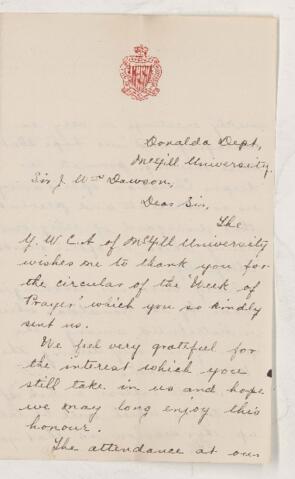 Donalda Dept,
McGill University.
Sir J. Wm Dawson,
Dear Sir,
The
Y. W. C. A of McGill University
wishes me to thank you for
the circular of the 'Week of
Prayer' which you so kindly
sent us.
We feel very grateful for
the interest which you
still take in us and hope
we may long enjoy this
honour.
The attendance at our